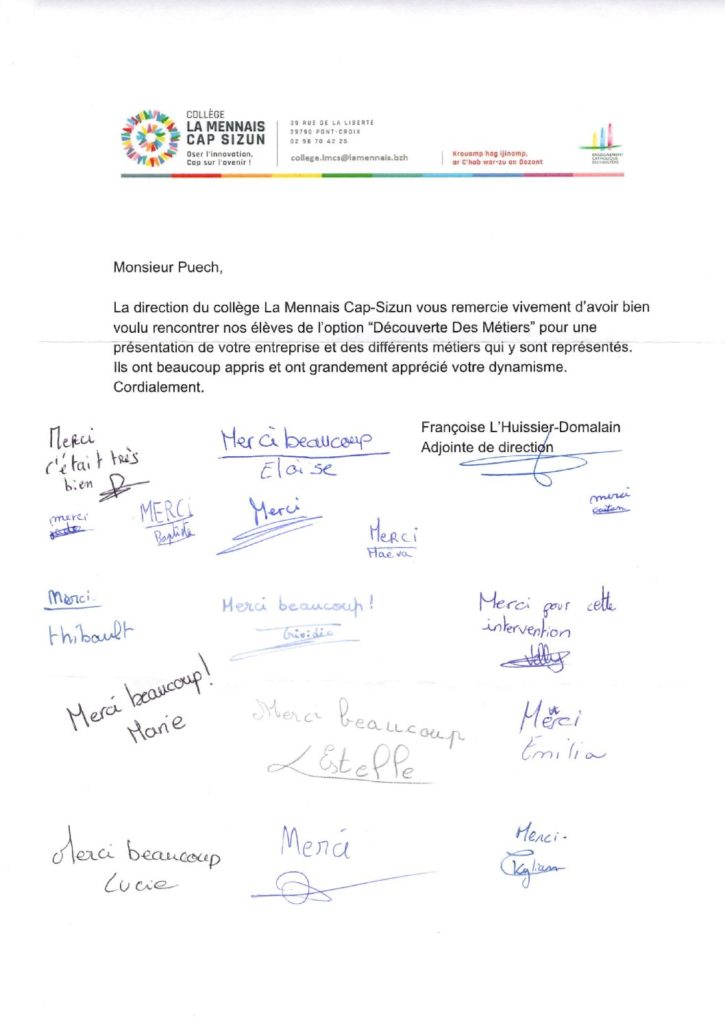 COLLÈGE
LA MENNAIS
CAP SIZUN
Oser l'innovation,
Cap sur l'avenir !
39 RUE DE LA LIBERTÉ
29790 PONT-CROIX
02 98 70 42 25
college.lmcs@lamennais.bzh
Krouomp hag ijinomp,
ar C'hab war-zu an Dazont
ENSEIGNEMENT
CATHOLIQUE
Monsieur Puech,
La direction du collège La Mennais Cap-Sizun vous remercie vivement d'avoir bien
voulu rencontrer nos élèves de l'option "Découverte Des Métiers" pour une
présentation de votre entreprise et des différents métiers qui y sont représentés.
Ils ont beaucoup appris et ont grandement apprécié votre dynamisme.
Cordialement.
Françoise L'Huissier-Domalain
Adjointe de direction
Merci
c'était très
bien
Merci beaucoup
Eloïse
merci
MERCI
Baptiste
Merci
MERCI
Maëva
merci
Merci.
thibault
Merci beaucoup !
Merci pour cette
intervention
Merci beaucoup !
Marie
Merci beaucoup
Estelle
Merci
Emilia
Merci beaucoup
Lucie
Merci
Merci.
Kylian